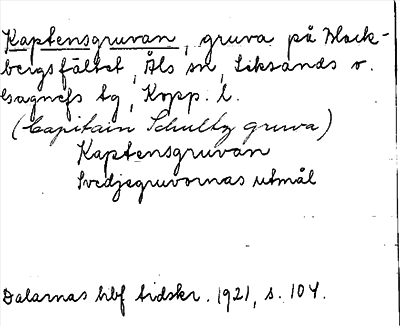 Kaptensgruvan, gruva på Black-
bergsfältet, Åls sn, Leksands o.
Gagnefs tg, Kopp. l.
(Capitain Schultz gruva)
Kaptensgruvan
Svedjegruvornas utmål
Dalarnas hbf tidskr. 1921, s. 104.